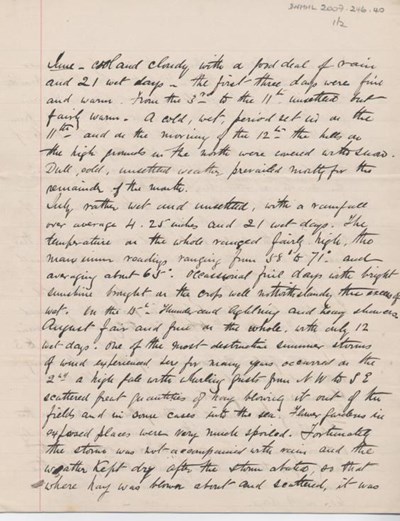 SHHNL 2007.246.40
1/2
June - cold and cloudy, with a good deal of rain
and 21 wet days - the first three days were fine
and warm. From the 3rd to the 11th unsettled but
fairly warm. A cold, wet, period set in on the
11th, and on the morning of the 12th the hills on
the high grounds in the north were covered with snow.
Dull, cold, unsettled weather prevailed mostly for the
remainder of the month.
July rather wet and unsettled, with a rainfall
over average 4.25 inches and 21 wet days. The
temperature on the whole ranged fairly high, the
maximum readings ranging from 58° to 71° and
averaging about 65°. Occasional fine days with bright
sunshine brought on the crops well notwithstanding the excess of
wet. On the 15th Thunder and lightning and heavy showers
August fair and fine on the whole, with only 12
wet days. One of the most destructive summer storms
of wind experienced here for many years occurred on the
2nd a high gale with whirling gusts from NW to SE
scattered great quantities of hay blowing it out of the
fields and in some cases into the sea. Flower gardens in
exposed places were very much spoiled. Fortunately
the storm was not accompanied with rain and the
weather kept dry after the storm abated, so that
where hay was blown about and scattered, it was